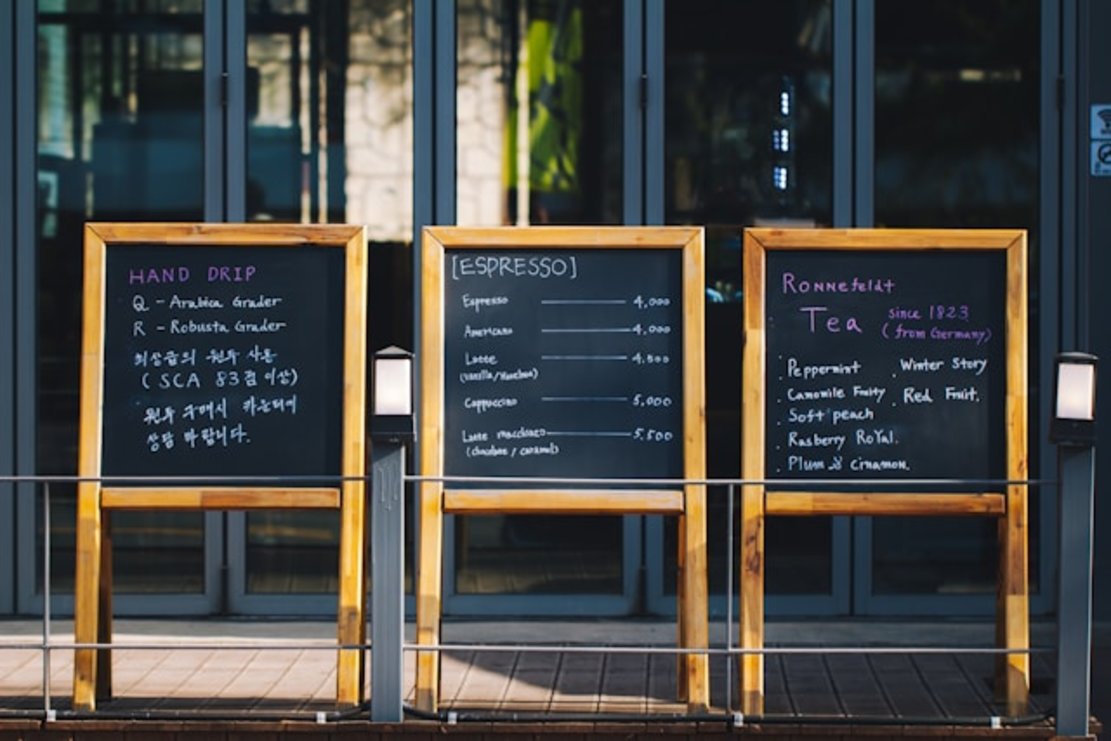 HAND DRIP
Q - Arabica Grader
R - Robusta Grader
최상급의 원두 사용
( SCA 83점 이상)
원두 구매시 카운터에
상담 바랍니다.
[ESPRESSO]
Espresso 4,000
Americano 4,000
Latte 4,500
(vanilla/Hazelnut)
Cappuccino 5,000
Latte macchiato 5,500
(chocolate / caramel)
Ronnefeldt
Tea since 1823
(from Germany)
· Peppermint · Winter Story
· Camomile Fruity · Red Fruit.
· Soft peach
· Rasberry RoYal.
· Plum & Cinnamon.